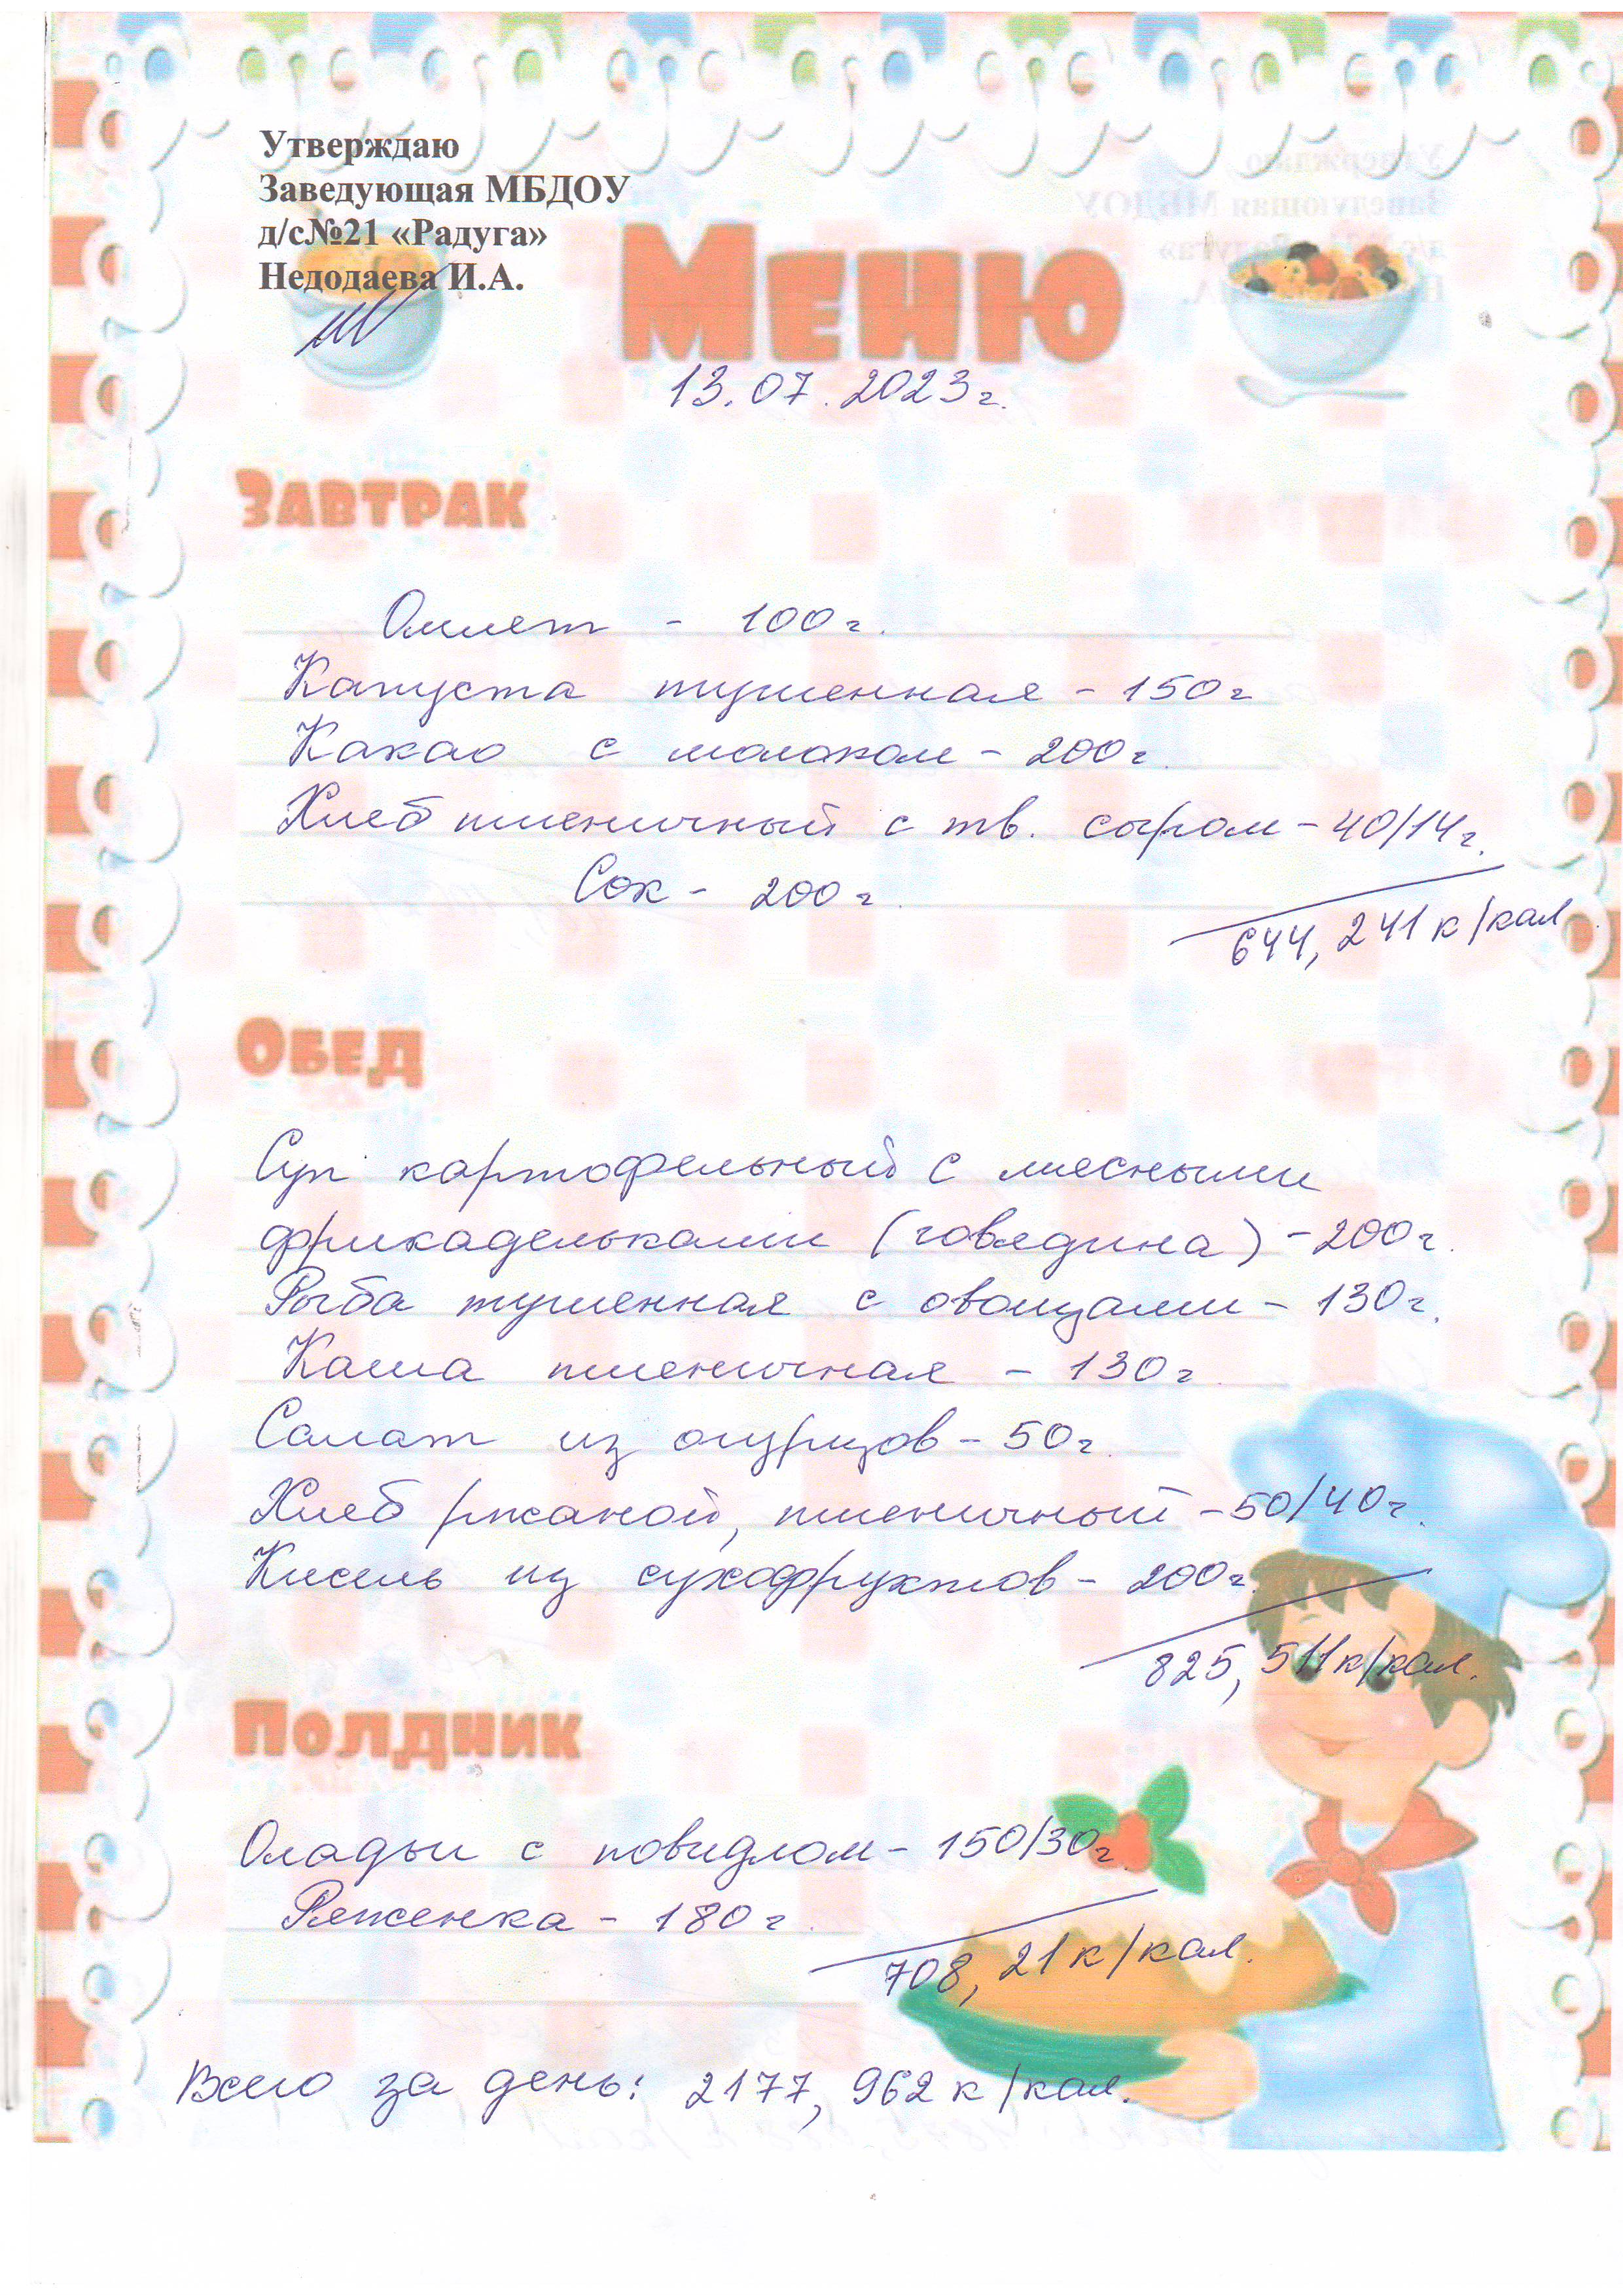 Утверждаю
Заведующая МБДОУ
д/с№21 «Радуга»
Недодаева И.А.
Меню
13.07.2023г.
Завтрак
Омлет - 100г.
Капуста тушенная - 150г
Какао с молоком - 200г.
Хлеб пшеничный с тв. сыром - 40/14г.
Сок - 200г.
644,241 к/кал
Обед
Суп картофельный с мясными
фрикадельками (говядина) - 200г.
Рыба тушенная с овощами - 130г.
Каша пшеничная - 130г.
Салат из огурцов - 50г.
Хлеб ржаной, пшеничный - 50/40г.
Кисель из сухофруктов - 200г.
825,511 к/кал.
Полдник
Оладьи с повидлом - 150/30г.
Ряженка - 180г.
708,21 к/кал.
Всего за день: 2177,962 к/кал.